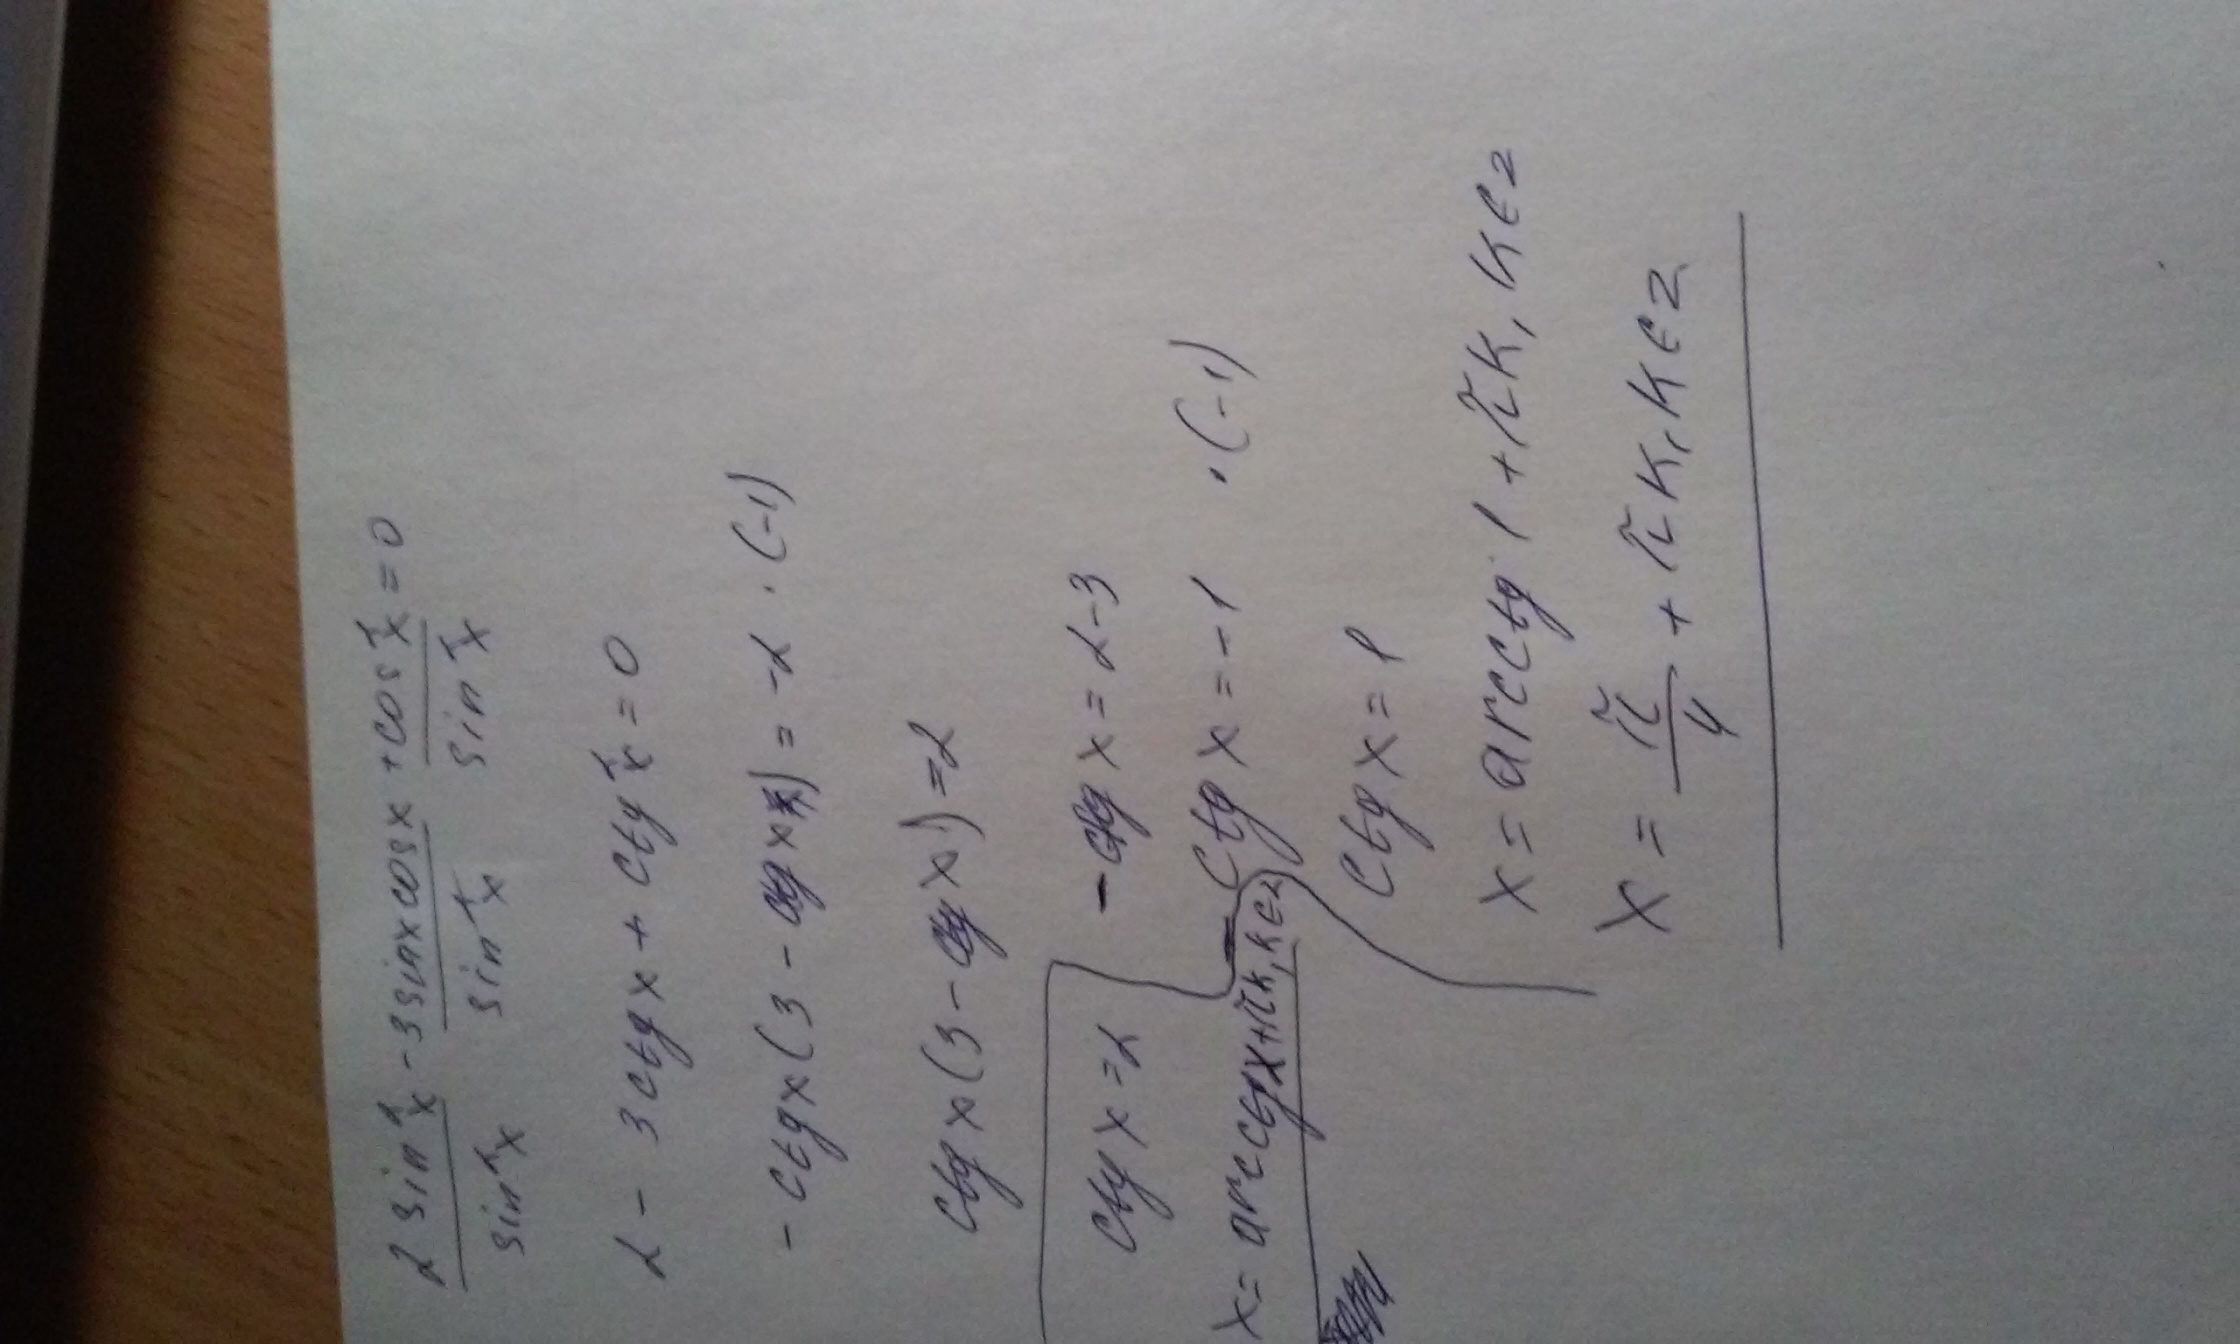 2sin²x/sin²x - 3sinxcosx/sin²x + cos²x/sin²x = 0
2 - 3ctgx + ctg²x = 0
-ctgx(3 - ctgx) = -2 · (-1)
ctgx(3 - ctgx) = 2
ctgx = 2
x = arcctgx + πk, k∈z
-ctgx = 2-3
ctgx = -1 · (-1)
ctgx = 1
x = arcctg 1 + πk, k∈z
x = π/4 + πk, k∈z